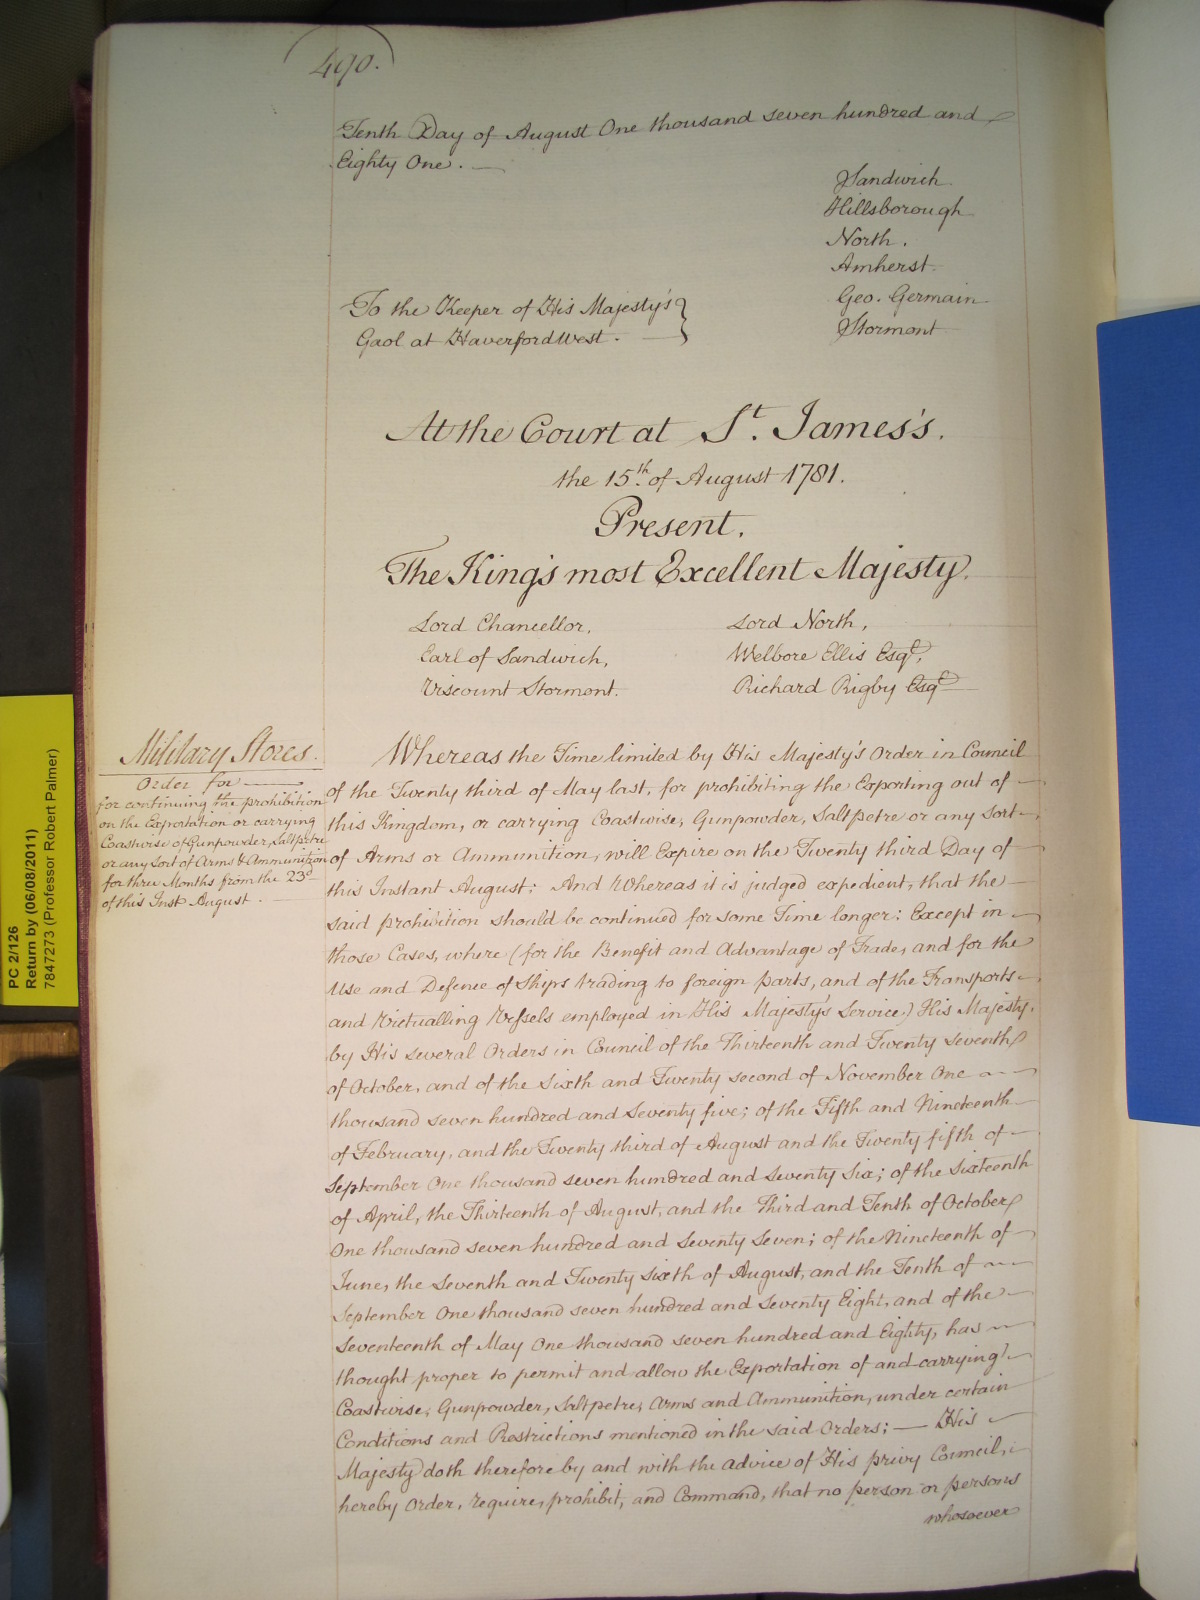 490.
Tenth Day of August One thousand seven hundred and
Eighty One.
Sandwich.
Hillsborough
North.
Amherst.
Geo. Germain
Stormont
To the Keeper of His Majesty's
Gaol at HaverfordWest.
At the Court at St. James's.
the 15th. of August 1781.
Present.
The King's most Excellent Majesty.
Lord Chancellor, Lord North,
Earl of Sandwich, Welbore Ellis Esqr.
Viscount Stormont. Richard Rigby Esqr
Military Stores.
Order for
for continuing the prohibition
on the Exportation or carrying
Coastwise of Gunpowder, Saltpetre
or any Sort of Arms & Ammunition
for three Months from the 23d
of this Inst August.
Whereas the Time limited by His Majesty's Order in Council
of the Twenty third of May last, for prohibiting the Exporting out of
this Kingdom, or carrying Coastwise, Gunpowder, Saltpetre or any Sort
of Arms or Ammunition, will Expire on the Twenty third Day of
this Instant August: And Whereas it is judged expedient, that the
said prohibition should be continued for some Time longer: Except in
those Cases, where (for the Benefit and Advantage of Trade, and for the
Use and Defence of Ships trading to foreign parts, and of the Transports
and Victualling Vessels employed in His Majesty's Service) His Majesty,
by His several Orders in Council of the Thirteenth and Twenty seventh
of October, and of the Sixth and Twenty second of November One
thousand seven hundred and Seventy five; of the Fifth and Nineteenth
of February, and the Twenty third of August and the Twenty fifth of
September One thousand seven hundred and seventy Six; of the Sixteenth
of April, the Thirteenth of August, and the Third and Tenth of October
One thousand seven hundred and Seventy Seven; of the Nineteenth of
June, the Seventh and Twenty Sixth of August, and the Tenth of
September One thousand seven hundred and Seventy Eight, and of the
Seventeenth of May One thousand seven hundred and Eighty, has
thought proper to permit and allow the Exportation of and carrying
Coastwise, Gunpowder, Saltpetre, Arms and Ammunition, under certain
Conditions and Restrictions mentioned in the said Orders; — His
Majesty doth therefore by and with the Advice of His privy Council,
hereby Order, require, prohibit, and Command, that no person or persons
whosoever
PC 2/126
Return by (06/08/2011)
7847273 (Professor Robert Palmer)